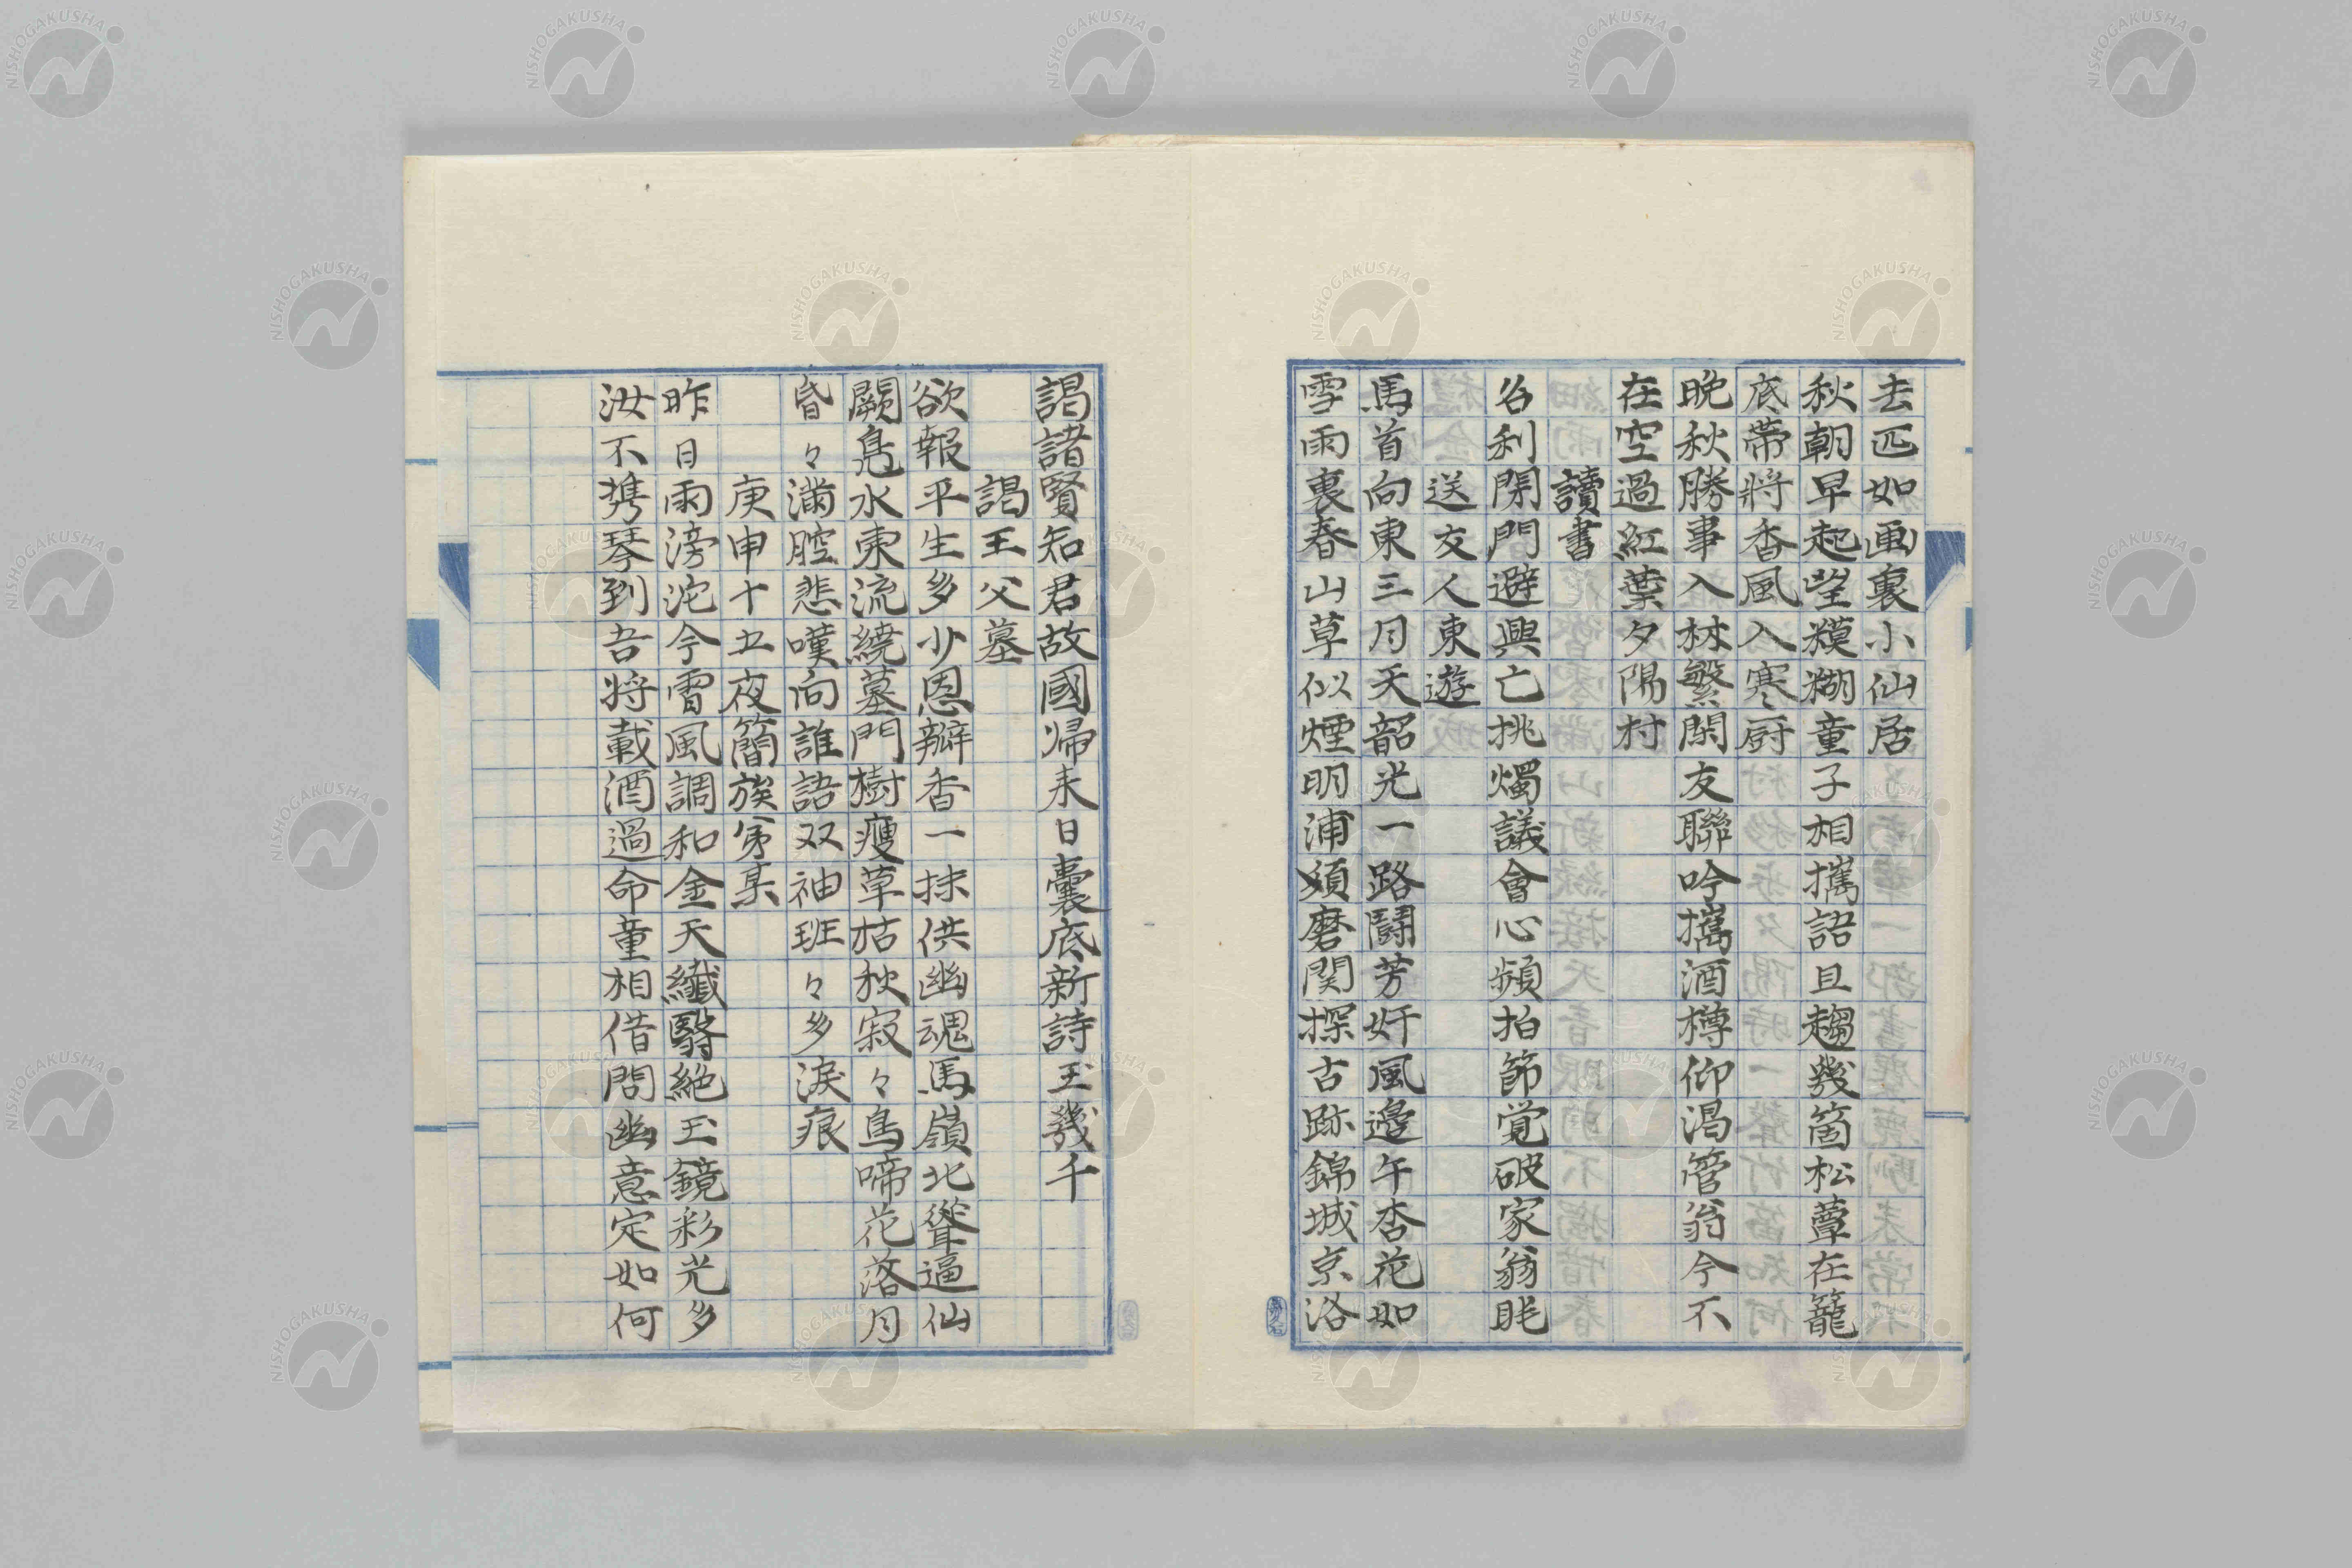 去匹如画裏小仙居
秋朝早起望糢糊童子相攜語且趨幾箇松蕈在籠
底帯将香風入寒厨
晩秋勝事入林繁閑友聯吟攜酒樽仰渇管翁今不
在空過紅葉夕陽村
讀書
名利閉門避興亡挑燭議會心頻拍節覚破家翁眠
送友人東遊
馬首向東三月天韶光一路鬪芳奸風邊午杏花如
雪雨裏春山草似煙明浦須磨関探古跡錦城京洛
謁諸賢知君故國帰来日嚢底新詩玉幾千
謁王父墓
欲報平生多少恩瓣香一抹供幽魂馬嶺北聳逼仙
闕鳧水東流繞墓門樹瘦草枯秋寂々鳥啼花落月
昏々満腔悲嘆向誰語双袖班々多涙痕
庚申十五夜簡族弟某
昨日雨滂沱今宵風調和金天纖翳絶玉鏡彩光多
汝不携琴到吾将載酒過命童相借問幽意定如何
NISHOGAKUSHA